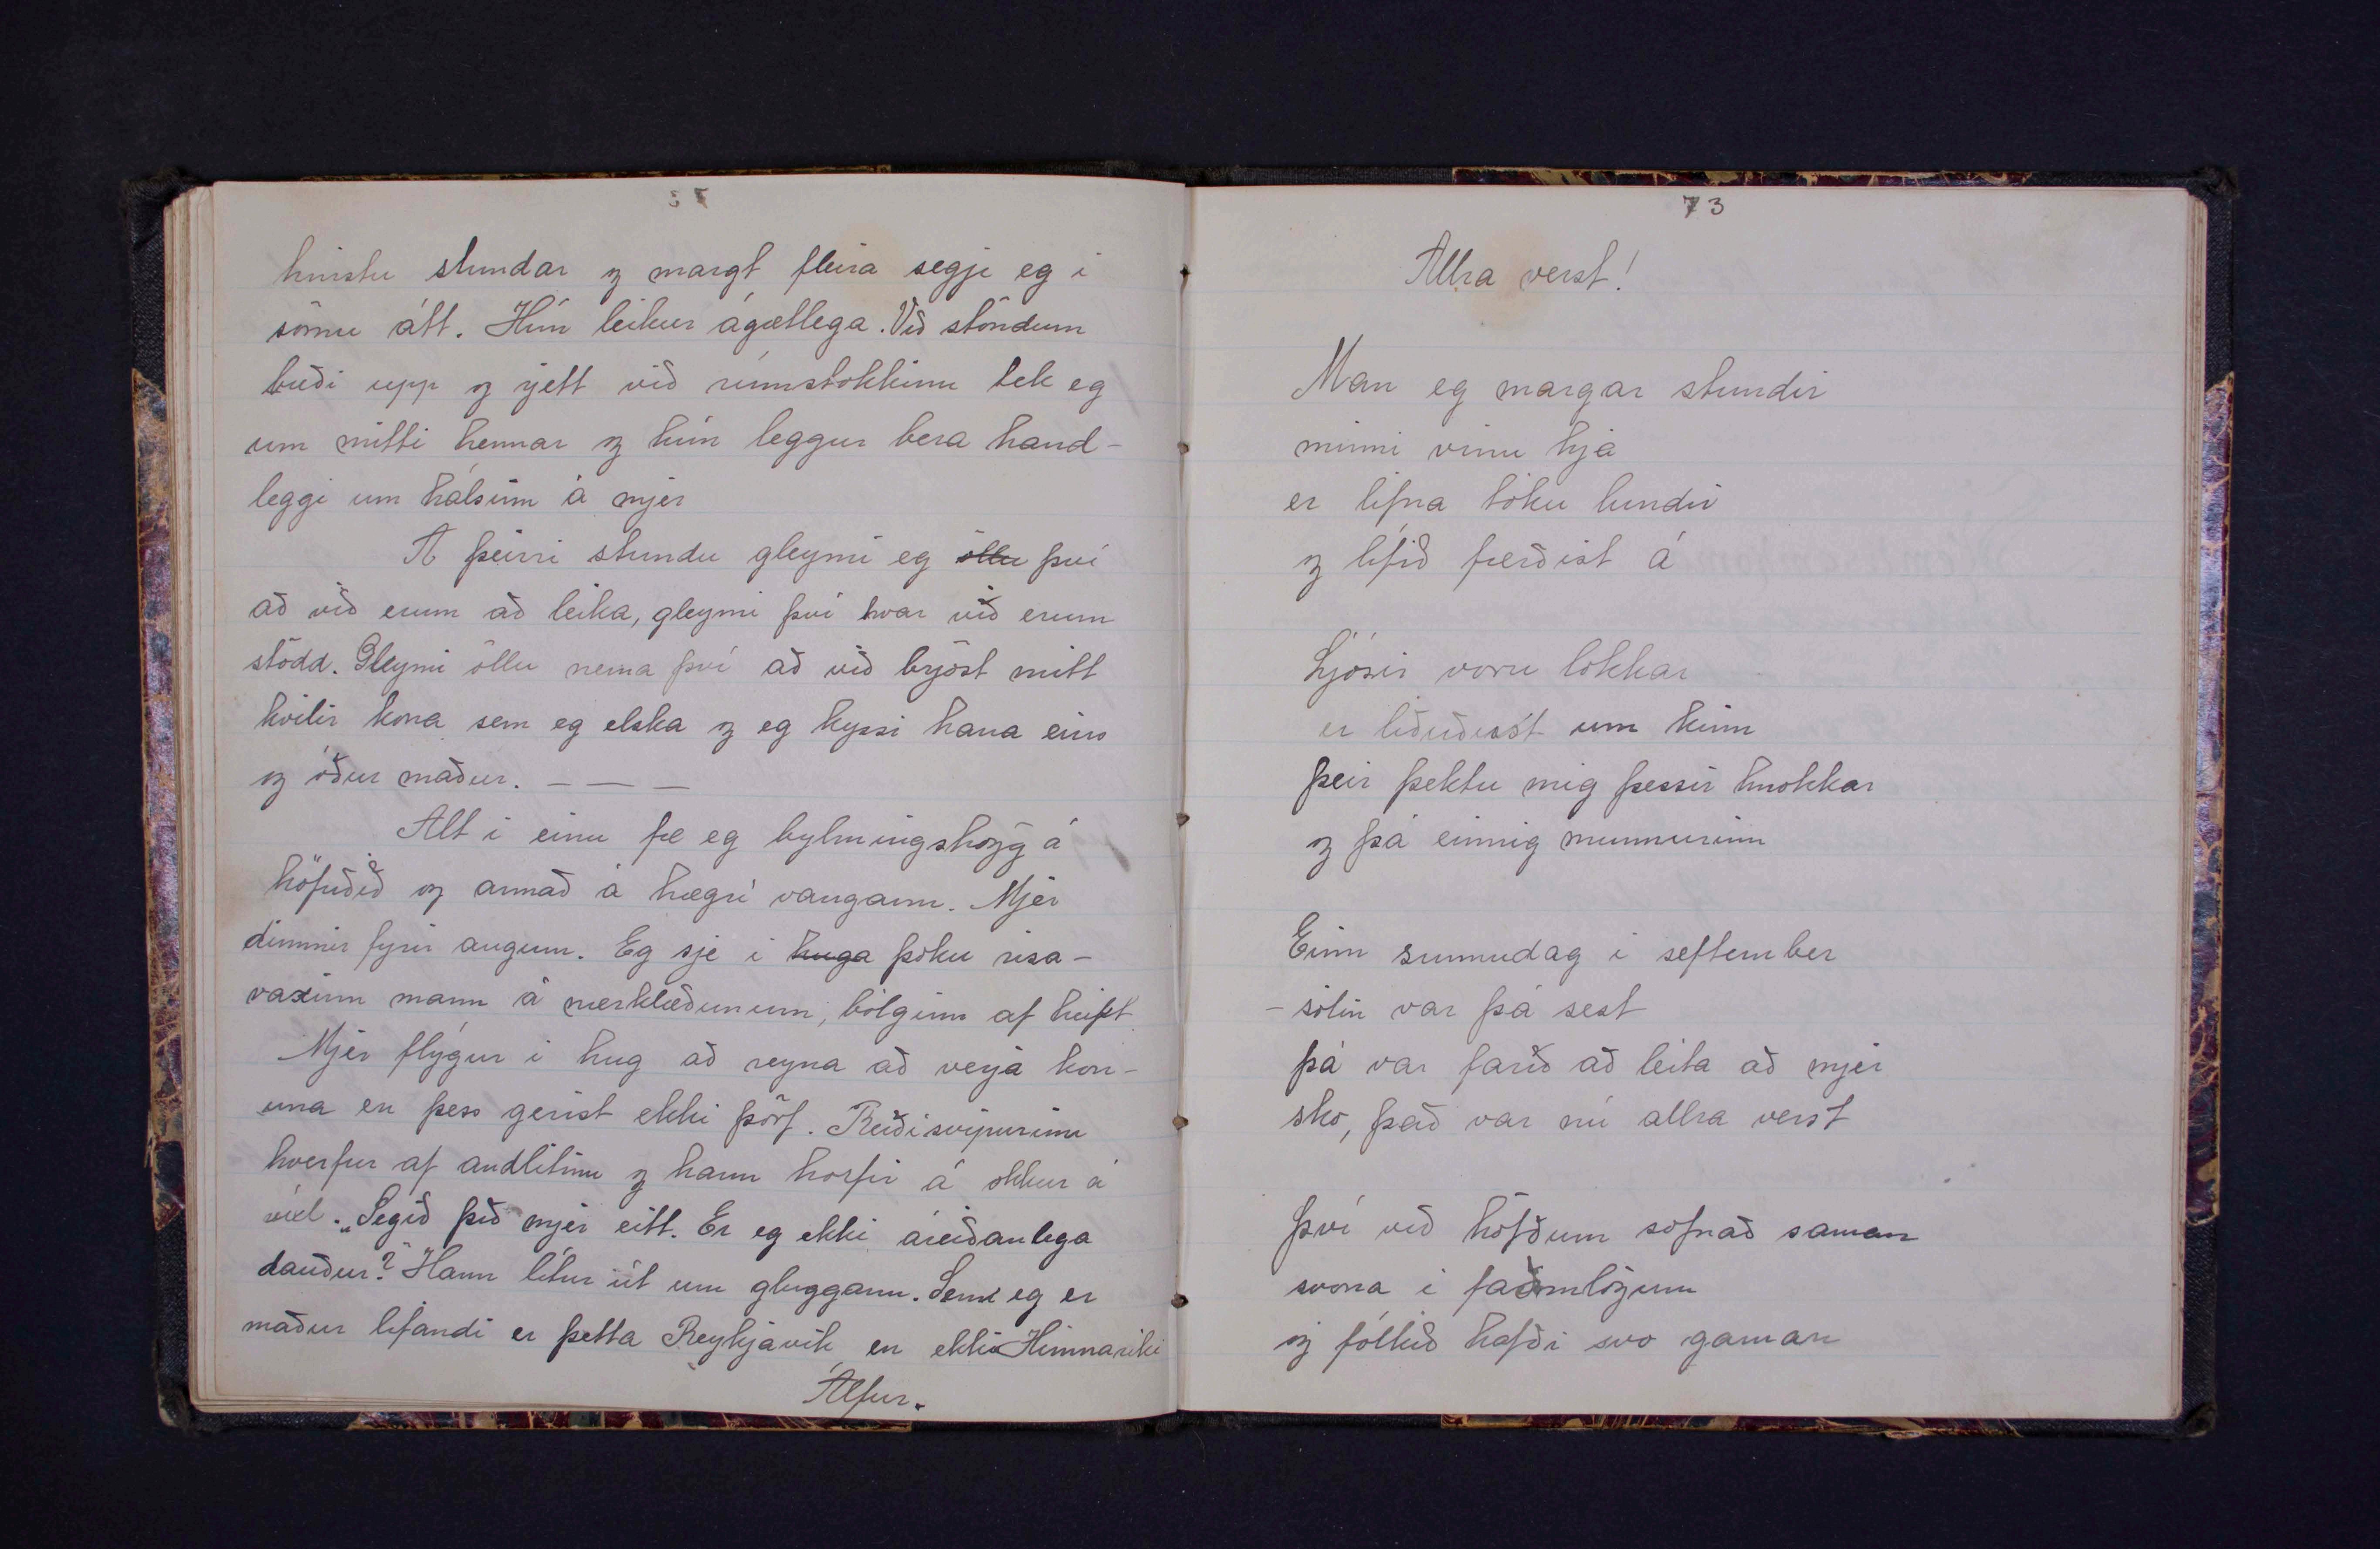 hinstu stundar og margt fleira segji eg i
sömu átt. Hún leikur ágætlega. Við stöndum
bæði upp og rjett við rúmstokkinn tek eg
um mitti hennar og hún leggur bera hand-
leggi um hálsinn á mjer
Á þeirri stundu gleymi eg öllu því
að við erum að leika, gleymi því hvar við erum
stödd. Gleymi öllu nema því að við brjóst mitt
hvílir kona sem eg elska og eg kyssi hana eins
og óður maður. - - -
Alt i einu fæ eg bylmingshögg á
höfuðið og annað á hægri vangann. Mjer
dimmir fyrir augum. Eg sje i huga þoku risa-
vaxinn mann á nærklæðunum, bólginn af heift
Mjer flýgur i hug að reyna að verja kon-
una en þess gerist ekki þörf. Reiðisvipurinn
hverfur af andlitinu og hann horfir á okkur á
víxl. „Segið þið mjer eitt. Er eg ekki áreiðanlega
dauður?" Hann lítur út um gluggann. Sem eg er
maður lifandi er þetta Reykjavík en ekki Himnaríki
Álfur.
73
Allra verst!
Man eg margar stundir
minni vinu hjá
er lifna tóku lundir
og lífið færðist á
Ljósir voru lokkar
er liðuðust um kinn
þeir þektu mig þessir hnokkar
og þá einnig munnurinn
Einn sunnudag i seftember
- sólin var þá sest
þá var farið að leita að mjer
sko, það var nú allra verst
Því við höfðum sofnað saman
svona i faðmlögum
og fólkið hafði svo gaman